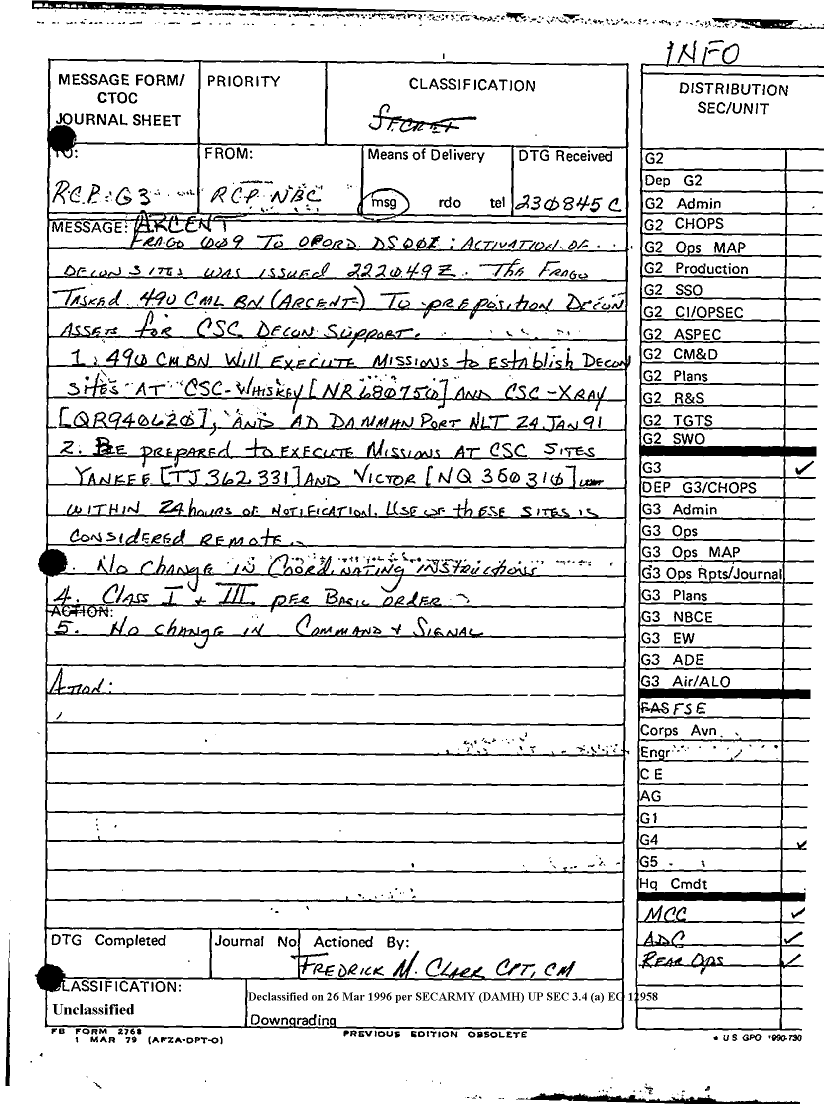 INFO
MESSAGE FORM/
CTOC
JOURNAL SHEET
PRIORITY
CLASSIFICATION
SECRET
TO:
R.C.P. G3
FROM:
RCP NBC
Means of Delivery
msg rdo tel
DTG Received
230845C
MESSAGE: ARCENT
FRAGO 009 TO OPORD DS002: ACTIVATION OF
DECON SITES WAS ISSUED 222049Z. The FRAGO
TASKED 490 CML BN (ARCENT) TO preposition DECON
ASSETS for CSC DECON SUPPORT.
1. 490 CM BN WILL EXECUTE MISSIONS to Establish DECON
SITES AT CSC-WHISKEY [NR680750] AND CSC-XRAY
[QR940620], AND AD DAMMAN PORT NLT 24 JAN 91
2. BE PREPARED to EXECUTE MISSIONS AT CSC SITES
YANKEE [TJ362331] AND VICTOR [NQ360310]
WITHIN 24 hours OF NOTIFICATION. USE OF thESE SITES IS
CONSIDERED REMOTE.
. NO CHANGE IN COORDINATING INSTRUCTIONS
4. CLASS I + III PER BASIC ORDER
ACTION:
5. NO CHANGE IN COMMAND + SIGNAL
ATION:
DTG Completed
Journal No
Actioned By:
FREDRICK M. CLARK CPT, CM
CLASSIFICATION:
Unclassified
Declassified on 26 Mar 1996 per SECARMY (DAMH) UP SEC 3.4 (a) EO 12958
Downgrading
FB FORM 2768
1 MAR 79 (AFZA-DPT-O)
PREVIOUS EDITION OBSOLETE
* U S GPO 1990-730
DISTRIBUTION
SEC/UNIT
G2
Dep G2
G2 Admin
G2 CHOPS
G2 Ops MAP
G2 Production
G2 SSO
G2 CI/OPSEC
G2 ASPEC
G2 CM&D
G2 Plans
G2 R&S
G2 TGTS
G2 SWO
G3 ✓
DEP G3/CHOPS
G3 Admin
G3 Ops
G3 Ops MAP
G3 Ops Rpts/Journal
G3 Plans
G3 NBCE
G3 EW
G3 ADE
G3 Air/ALO
FAS FSE
Corps Avn
Engr
C E
AG
G1
G4 ✓
G5
Hq Cmdt
MCC ✓
ADC ✓
REAR OPS ✓